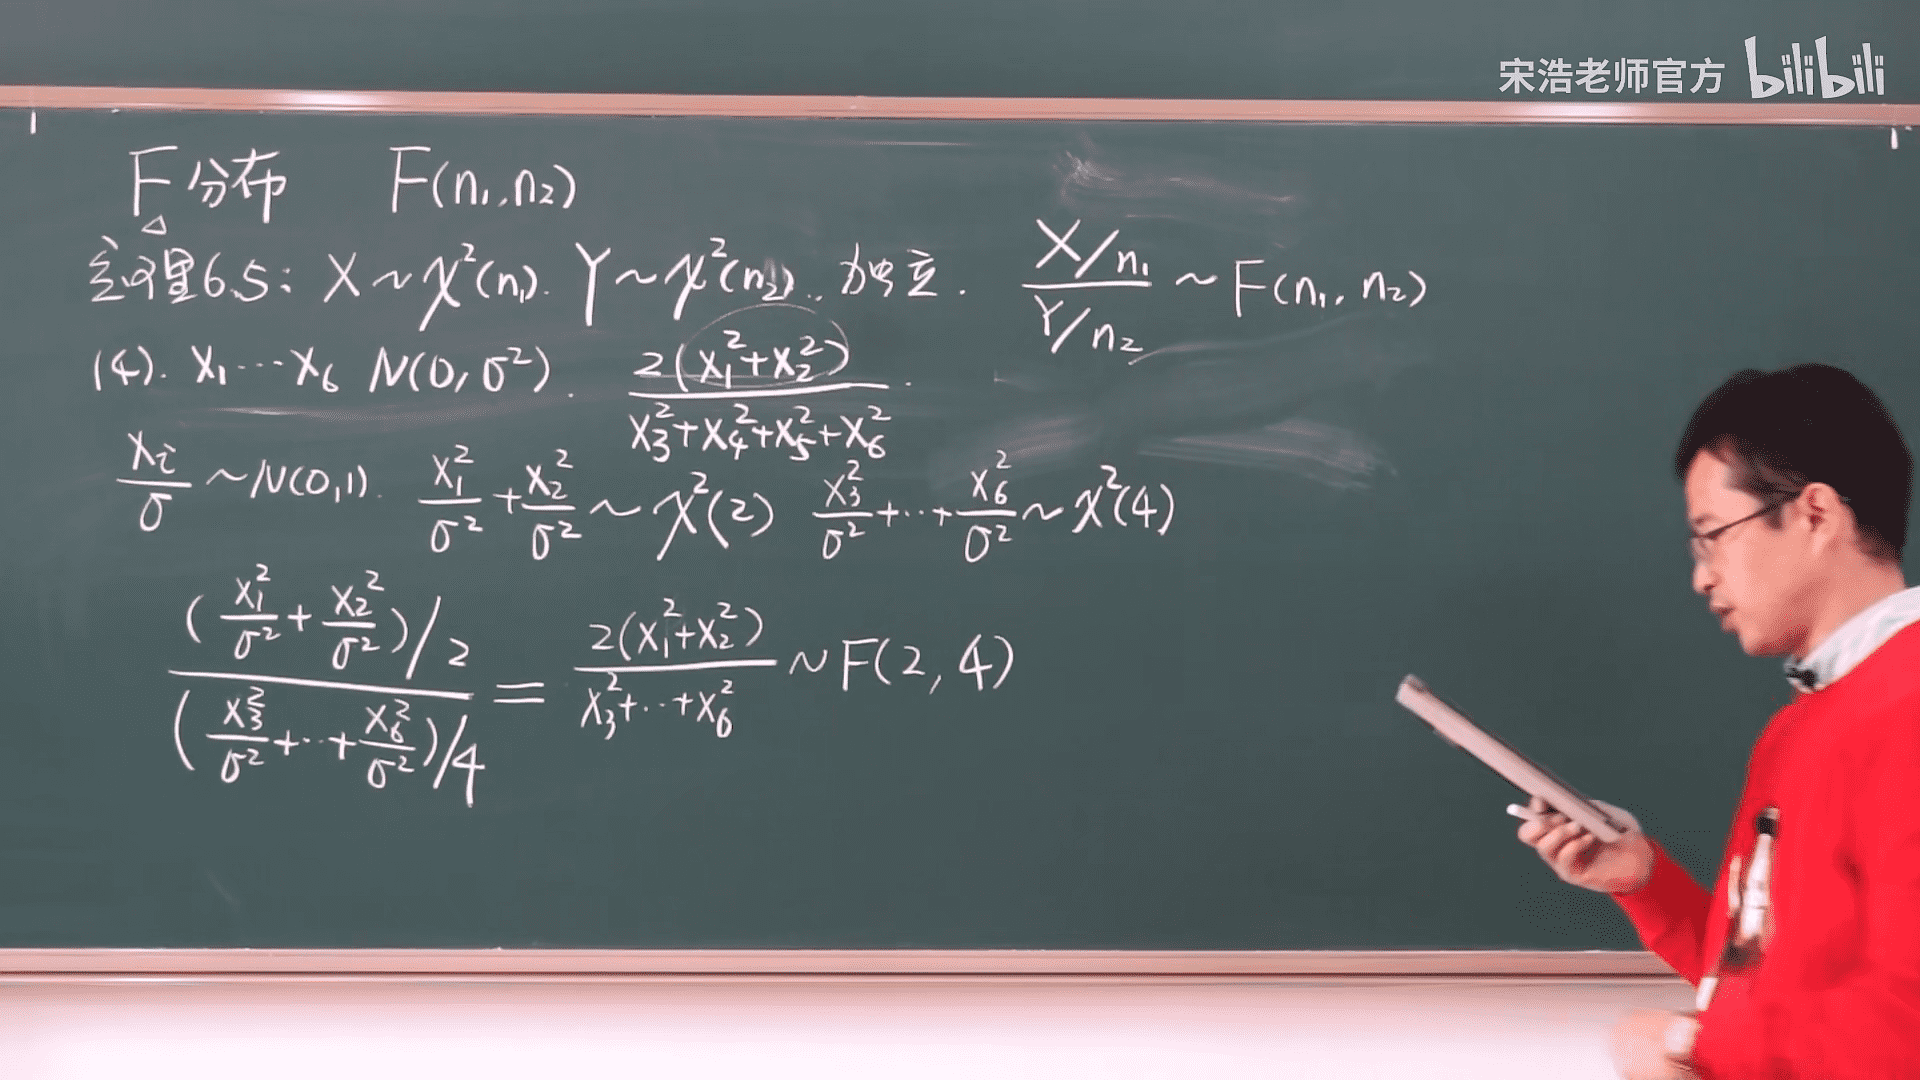 宋浩老师官方 bilibili
F分布 F(n₁,n₂)
定理6.5: X~χ²(n₁). Y~χ²(n₂), 独立. (X/n₁)/(Y/n₂) ~ F(n₁, n₂)
(4). X₁…X₆ N(0,σ²). 2(X₁²+X₂²)/(X₃²+X₄²+X₅²+X₆²).
Xᵢ/σ ~N(0,1). X₁²/σ²+X₂²/σ² ~ χ²(2) X₃²/σ²+…+X₆²/σ² ~ χ²(4)
((X₁²/σ²+X₂²/σ²)/2)/((X₃²/σ²+…+X₆²/σ²)/4) = 2(X₁²+X₂²)/(X₃²+…+X₆²) ~ F(2,4)